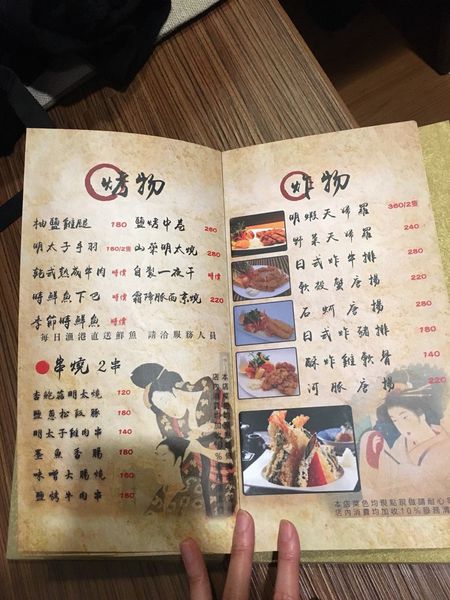 烤物
柚鹽雞腿 180 鹽烤中卷 260
明太子手羽 160/2隻 山藥明太燒 280
乾式熟成牛肉 時價 自製一夜干 時價
時鮮魚下巴 時價 霜降豚西京燒 220
季節時鮮魚 時價
每日漁港直送鮮魚 請洽服務人員
串燒 2串
杏鮑菇明太燒 120
鹽蔥松阪豚 180
明太子雞肉串 140
墨魚香腸 180
味噌大腸燒 160
鹽烤牛肉串 180
炸物
明蝦天婦羅 360/2隻
野菜天婦羅 240
日式炸牛排 280
軟殼蟹唐揚 220
石蚵唐揚 280
日式炸豬排 180
酥炸雞軟骨 140
河豚唐揚 220
本店菜色均現點現做請耐心
店內消費均加收10%服務